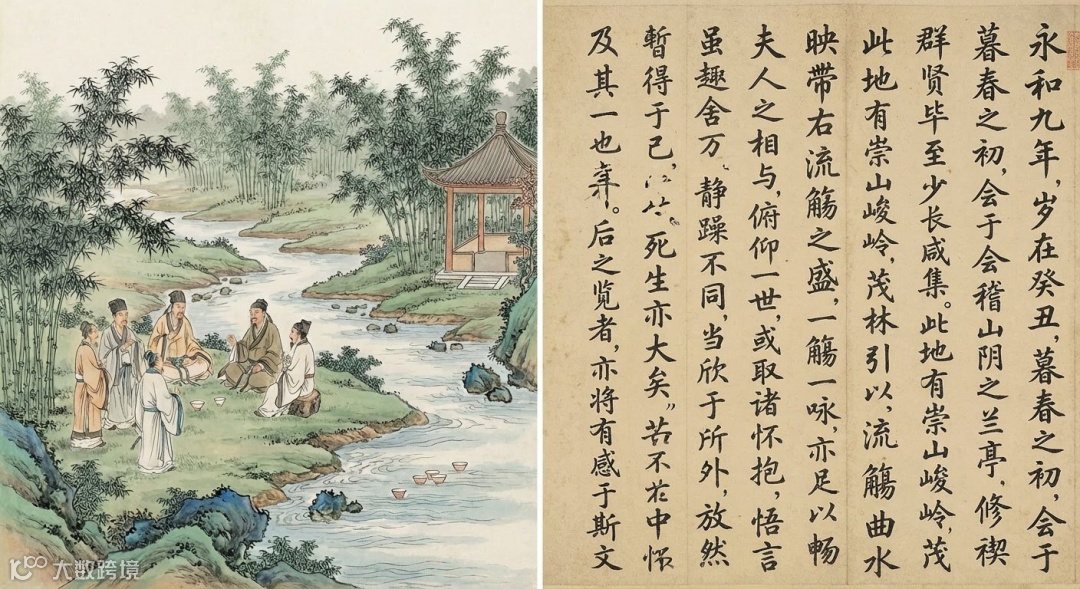 永和九年,岁在癸丑,暮春之初,会于
暮春之初,会于会稽山阴之兰亭、修禊
群贤毕至少长咸集。此地有崇山峻岭,茂
此地有崇山峻岭,茂林引以,流觞曲水
映带右流觞之盛,一觞一咏,亦足以畅
夫人之相与,俯仰一世,或取诸怀抱,悟言
虽趣舍万、静躁不同,当欣于所外,放然
暂得于己,死生亦大矣。苦不在中怀
及其一也。后之览者,亦将有感于斯文
大数跨境